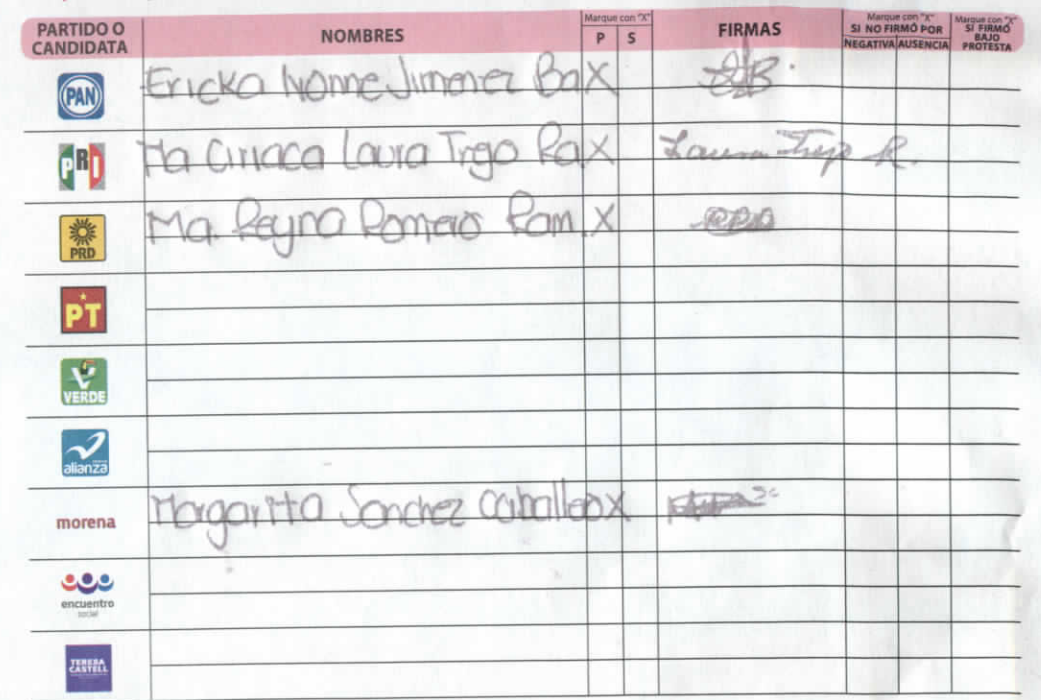 PARTIDO O CANDIDATA NOMBRES Marque con "X" P S FIRMAS Marque con "X" SI NO FIRMÓ POR NEGATIVA AUSENCIA Marque con "X" SI FIRMÓ BAJO PROTESTA
PAN Ericka Ivonne Jimenez Ba X
PRI Ma Ciriaca Laura Trejo Ra X Laura Trejo R.
PRD Ma. Reyna Romero Ram. X
PT
VERDE
alianza
morena Margarita Sanchez Caballero X
encuentro social
TERESA CASTELL